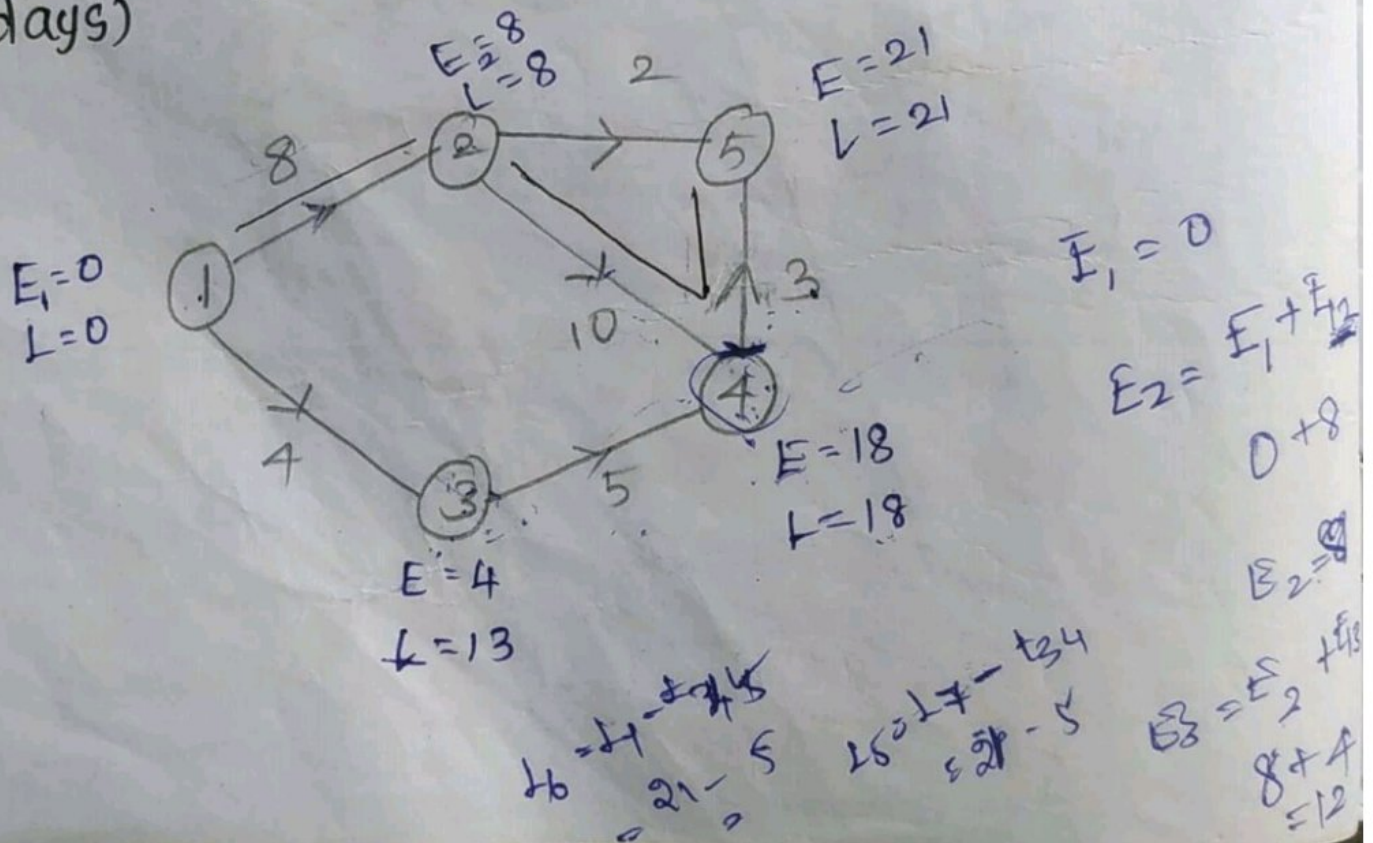 days)
E2=8
L=8
2
E=21
L=21
8
2
5
1
E1=0
L=0
10
3
4
4
3
5
E=18
L=18
E=4
L=13
E1 = 0
E2 = E1 + t12
0+8
E2=8
E3 = E2 + t13
8+4
=12
21- 5
=
- t34
= 21 - 5